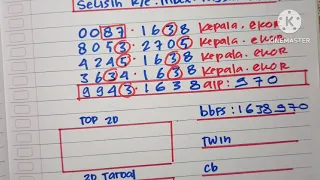 Selisih K/E
0087 · 1638 kepala. ekor
8053 · 2705 kepala. ekor
4245 · 1638 kepala. ekor
3634 · 1638 kepala. ekor
9943 · 1638 aip: 970
TOP 2D
bbfs: 1638970
Twin
2D Taroal
cb
KINEMASTER